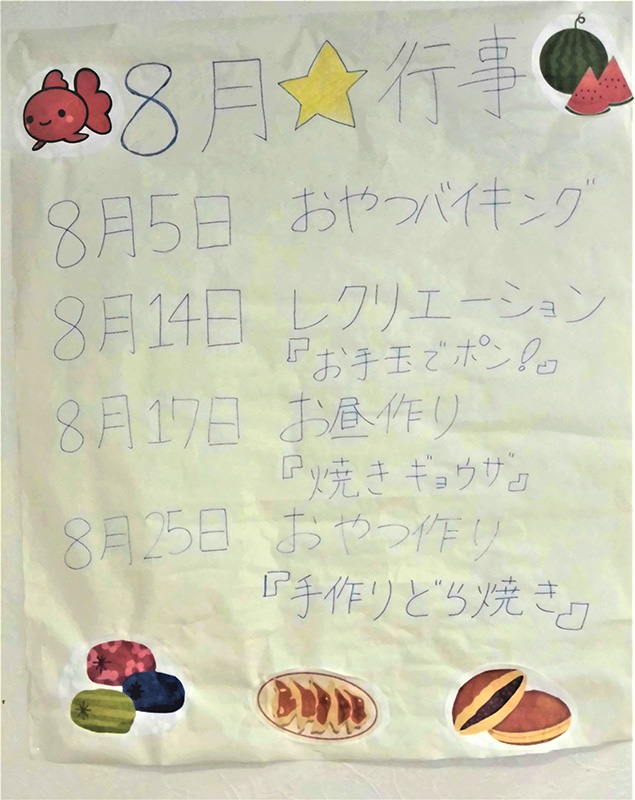 8月☆行事
8月5日 おやつバイキング
8月14日 レクリエーション
『お手玉でポン!』
8月17日 お昼作り
『焼きギョウザ』
8月25日 おやつ作り
『手作りどら焼き』